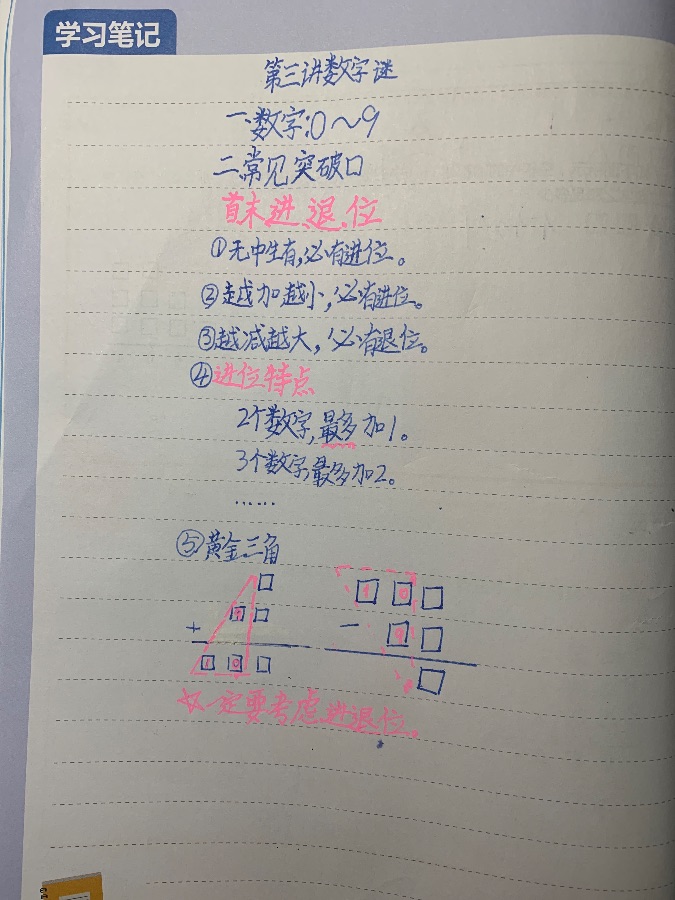 学习笔记
第三讲数字谜
一、数字:0～9
二常见突破口
首末进、退、位
①无中生有,必有进位。
②越加越小,必有进位。
③越减越大,必有退位。
④进位特点
2个数字,最多加1。
3个数字,最多加2。
……
⑤黄金三角
□ 1 0 □
9 □ － 9 □
+
1 0 □ □
一定要考虑进退位。